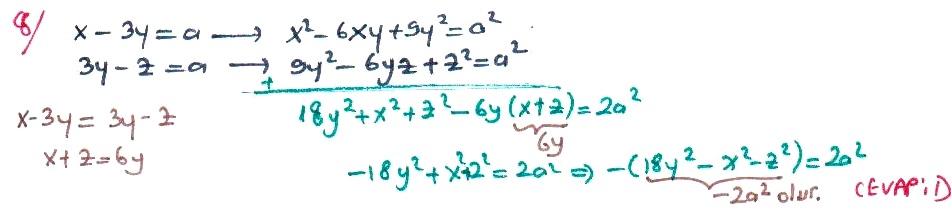 8/ x - 3y = a → x² - 6xy + 9y² = a²
3y - z = a → 9y² - 6yz + z² = a²
+
18y² + x² + z² - 6y(x+z) = 2a²
6y
x - 3y = 3y - z
x + z = 6y
-18y² + x² + z² = 2a² ⇒ -(18y² - x² - z²) = 2a²
-2a² olur.
CEVAP: D